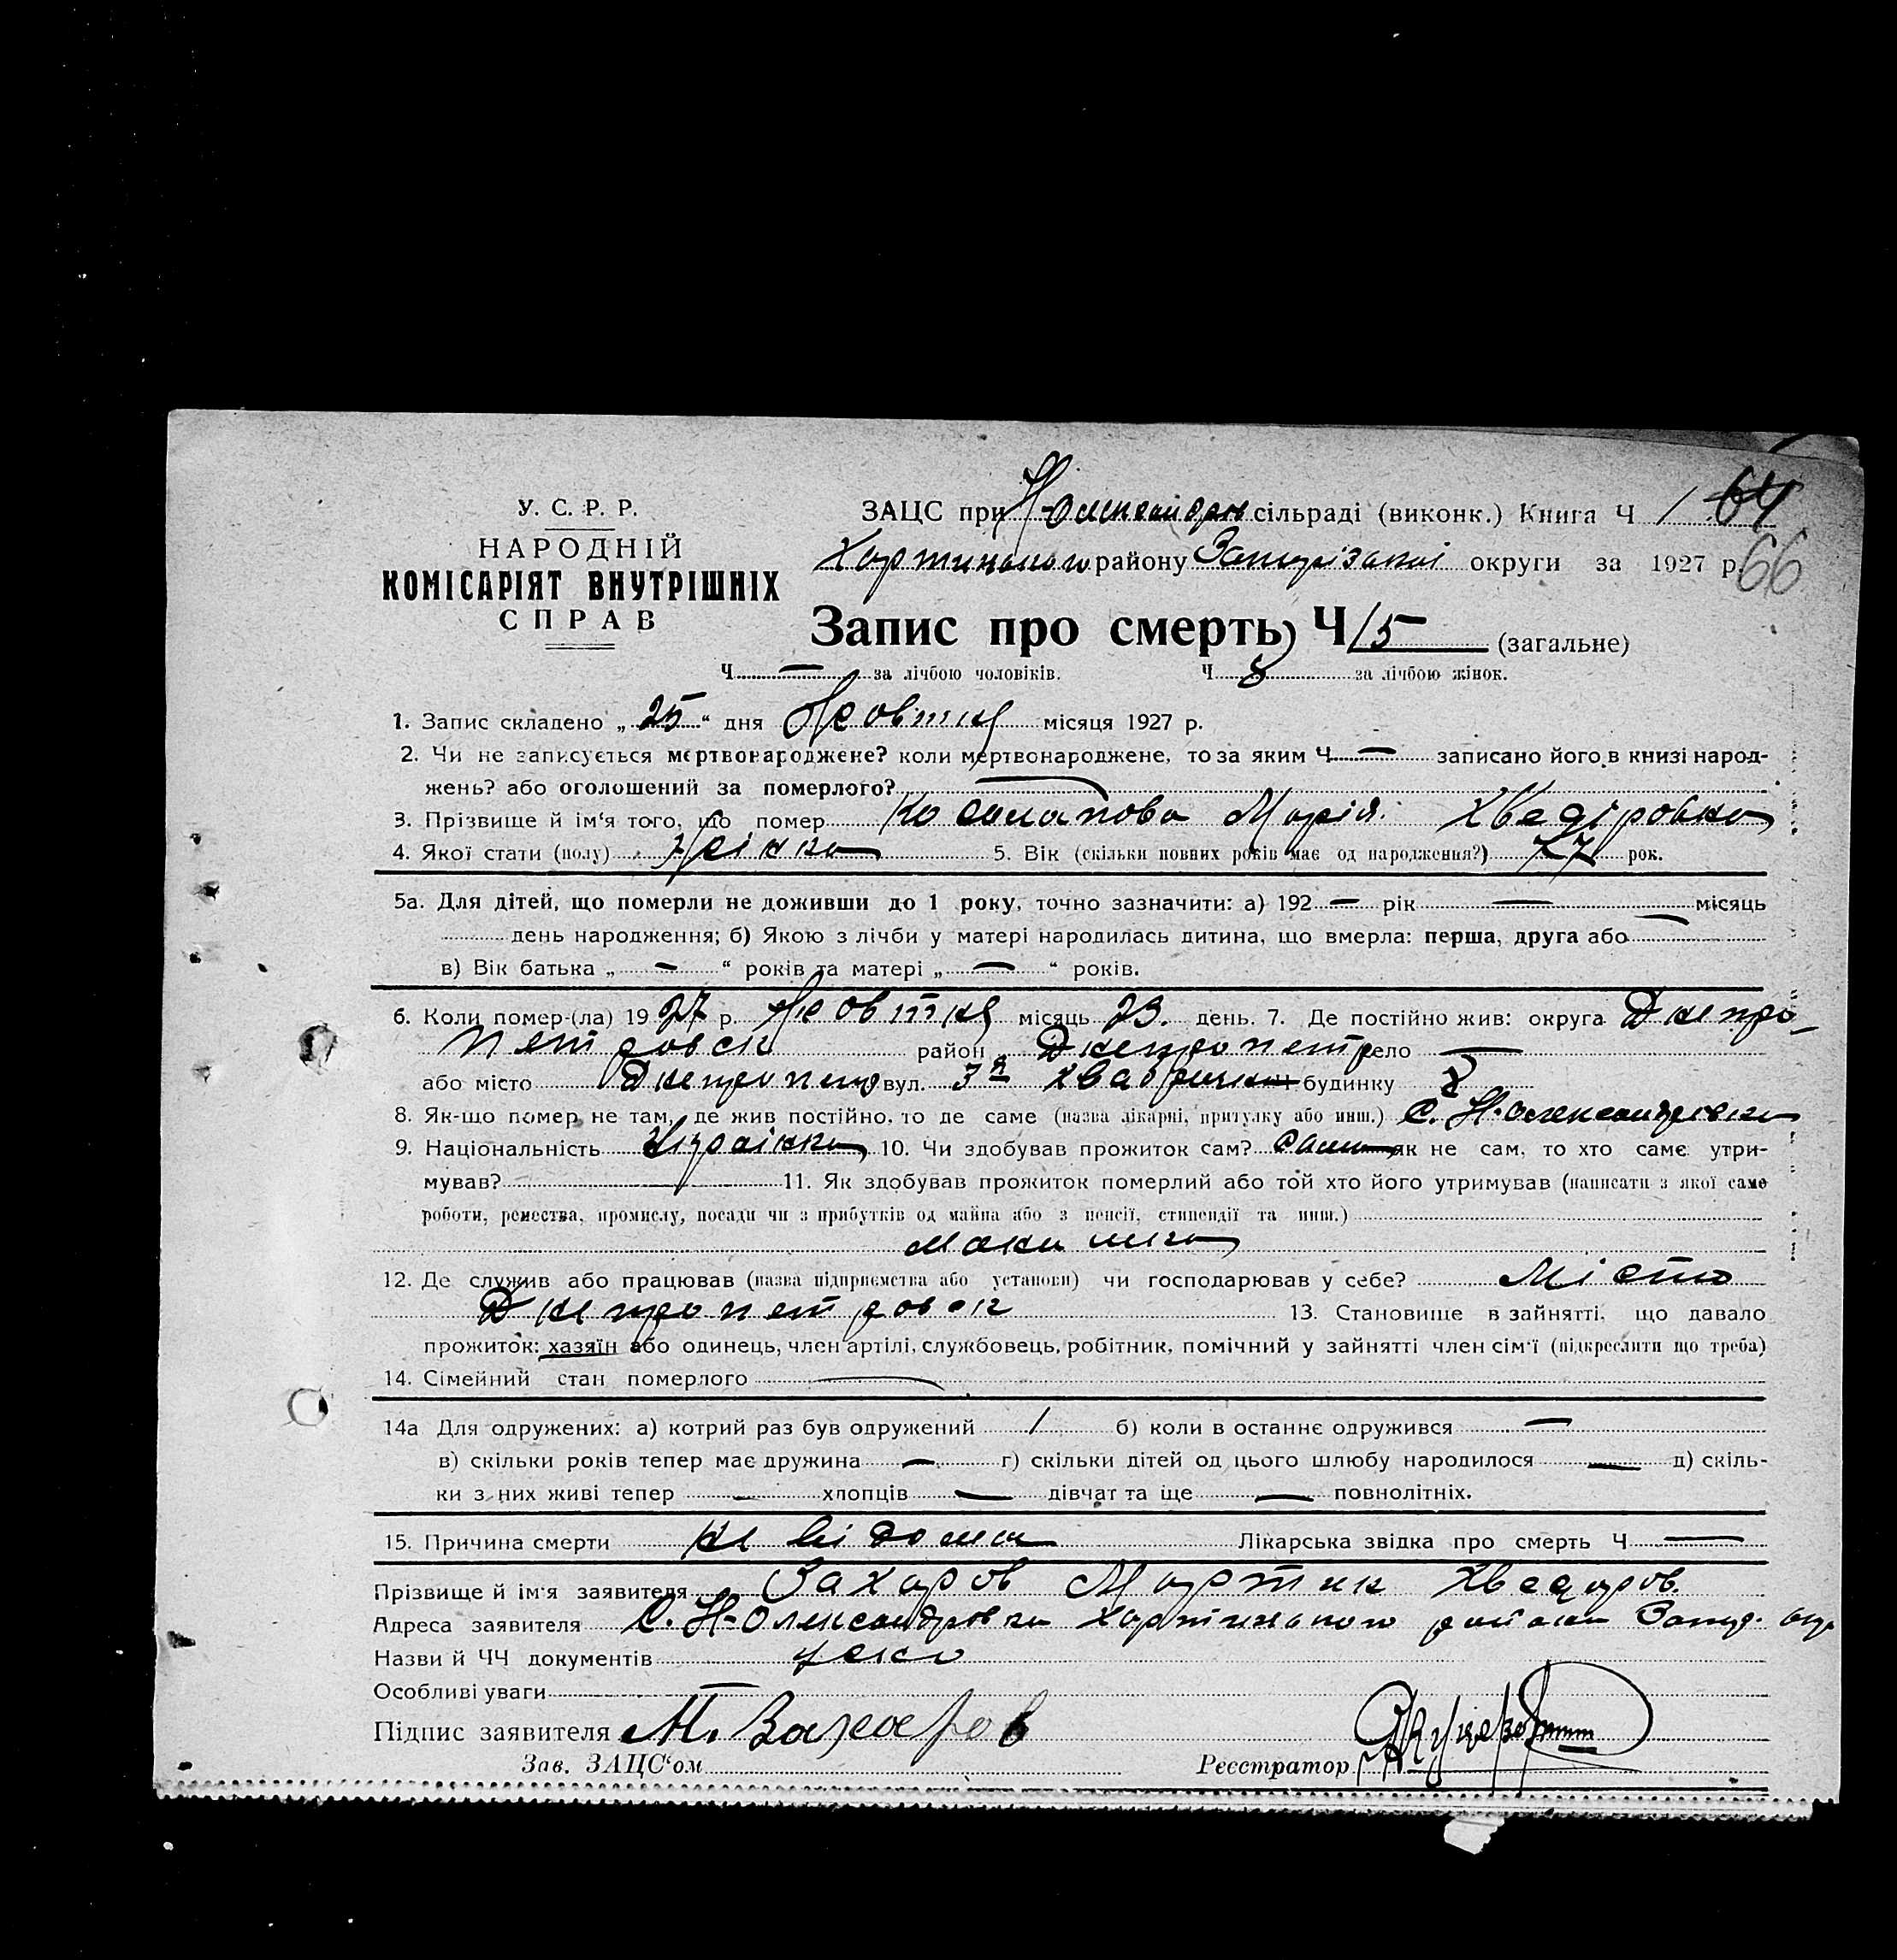 У. С. Р. Р.
НАРОДНІЙ
КОМІСАРІЯТ ВНУТРІШНІХ
СПРАВ
ЗАЦС при Н-Олександров сільраді (виконк.) Книга Ч 1 64
Хортицького району Запорізької округи за 1927 р. 66
Запис про смерть Ч 15 (загальне)
Ч — за лічбою чоловіків. Ч 8 за лічбою жінок.
1. Запис складено „ 25 “ дня Жовтня місяця 1927 р.
2. Чи не записується мертвонароджене? коли мертвонароджене, то за яким Ч — записано його в книзі народ-
жень? або оголошений за померлого? —
3. Прізвище й ім'я того, що помер Марія Хведіровна
4. Якої стати (полу) жінка 5. Вік (скільки повних років має од народження?) рок.
5а. Для дітей, що померли не доживши до 1 року, точно зазначити: а) 192 — рік — місяць
день народження; б) Якою з лічби у матері народилась дитина, що вмерла: перша, друга або —
в) Вік батька „ — “ років та матері „ — “ років.
6. Коли помер-(ла) 1927 р. Жовтня місяць 23. день. 7. Де постійно жив: округа Днепро-
петровск район Днепропетр село —
або місто Днепропетр вул. 3я Ч будинку
8. Як-що помер не там, де жив постійно, то де саме (назва лікарні, притулку або инш.) С. Н-Олександровка
9. Національність Українка 10. Чи здобував прожиток сам? Сама як не сам, то хто саме утри-
мував? 11. Як здобував прожиток померлий або той хто його утримував (написати з якої саме
роботи, ремества, промислу, посади чи з прибутків од майна або з пенсії, стипендії та инш.)
12. Де служив або працював (назва підприємства або установи) чи господарював у себе? Місто
Днепропетровск 13. Становище в зайнятті, що давало
прожиток: хазяїн або одинець, член артілі, службовець, робітник, помічний у зайнятті член сім'ї (підкреслити що треба)
14. Сімейний стан померлого —
14а Для одружених: а) котрий раз був одружений 1 б) коли в останнє одружився —
в) скільки років тепер має дружина — г) скільки дітей од цього шлюбу народилося — д) скіль-
ки з них живі тепер — хлопців — дівчат та ще — повнолітніх.
15. Причина смерти не відома Лікарська звідка про смерть Ч —
Прізвище й ім'я заявителя Захаров Мартин Хведоров.
Адреса заявителя С. Н-Олександровка Хортицького району Запор. окр
Назви й ЧЧ документів
Особливі уваги —
Підпис заявителя М. Захаров
Зав. ЗАЦС'ом Реєстратор